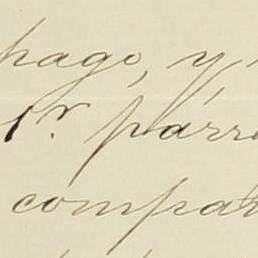 pago, y
1r. párra
compar